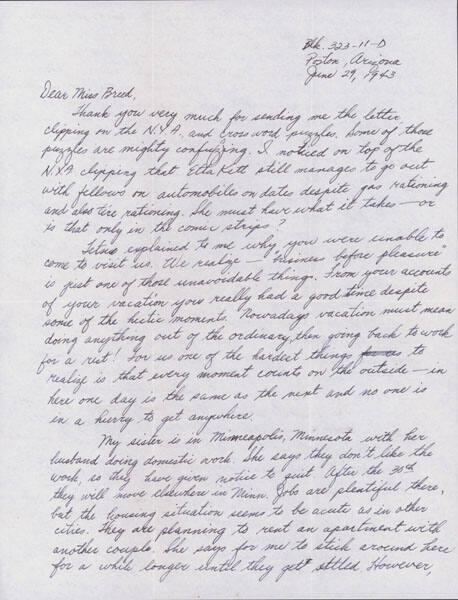 Blk. 323-11-D
Poston, Arizona
June 29, 1943
Dear Miss Breed,
Thank you very much for sending me the letter,
clipping on the N.Y.A. and crossword puzzles. Some of those
puzzles are mighty confusing. I noticed on top of the
NYA clipping that Etta Kett still manages to go out
with fellows on automobiles on dates despite gas rationing
and also tire rationing. She must have what it takes — or
is that only in the comic strips?
explained to me why you were unable to
come to visit us. We realize — "business before pleasure"
is just one of those unavoidable things. From your accounts
of your vacation you really had a good time despite
some of the hectic moments. Nowadays vacation must mean
doing anything out of the ordinary, then going back to work
for a rest! For us one of the hardest things to
realize is that every moment counts on the outside — in
here one day is the same as the next and no one is
in a hurry to get anywhere.
My sister is in Minneapolis, Minnesota with her
husband doing domestic work. She says they don't like the
work, so they have given notice to quit. After the 30th
they will move elsewhere in Minn. Jobs are plentiful there,
but the housing situation seems to be acute as in other
cities. They are planning to rent an apartment with
another couple. She says for me to stick around here
for a while longer until they get settled. However,